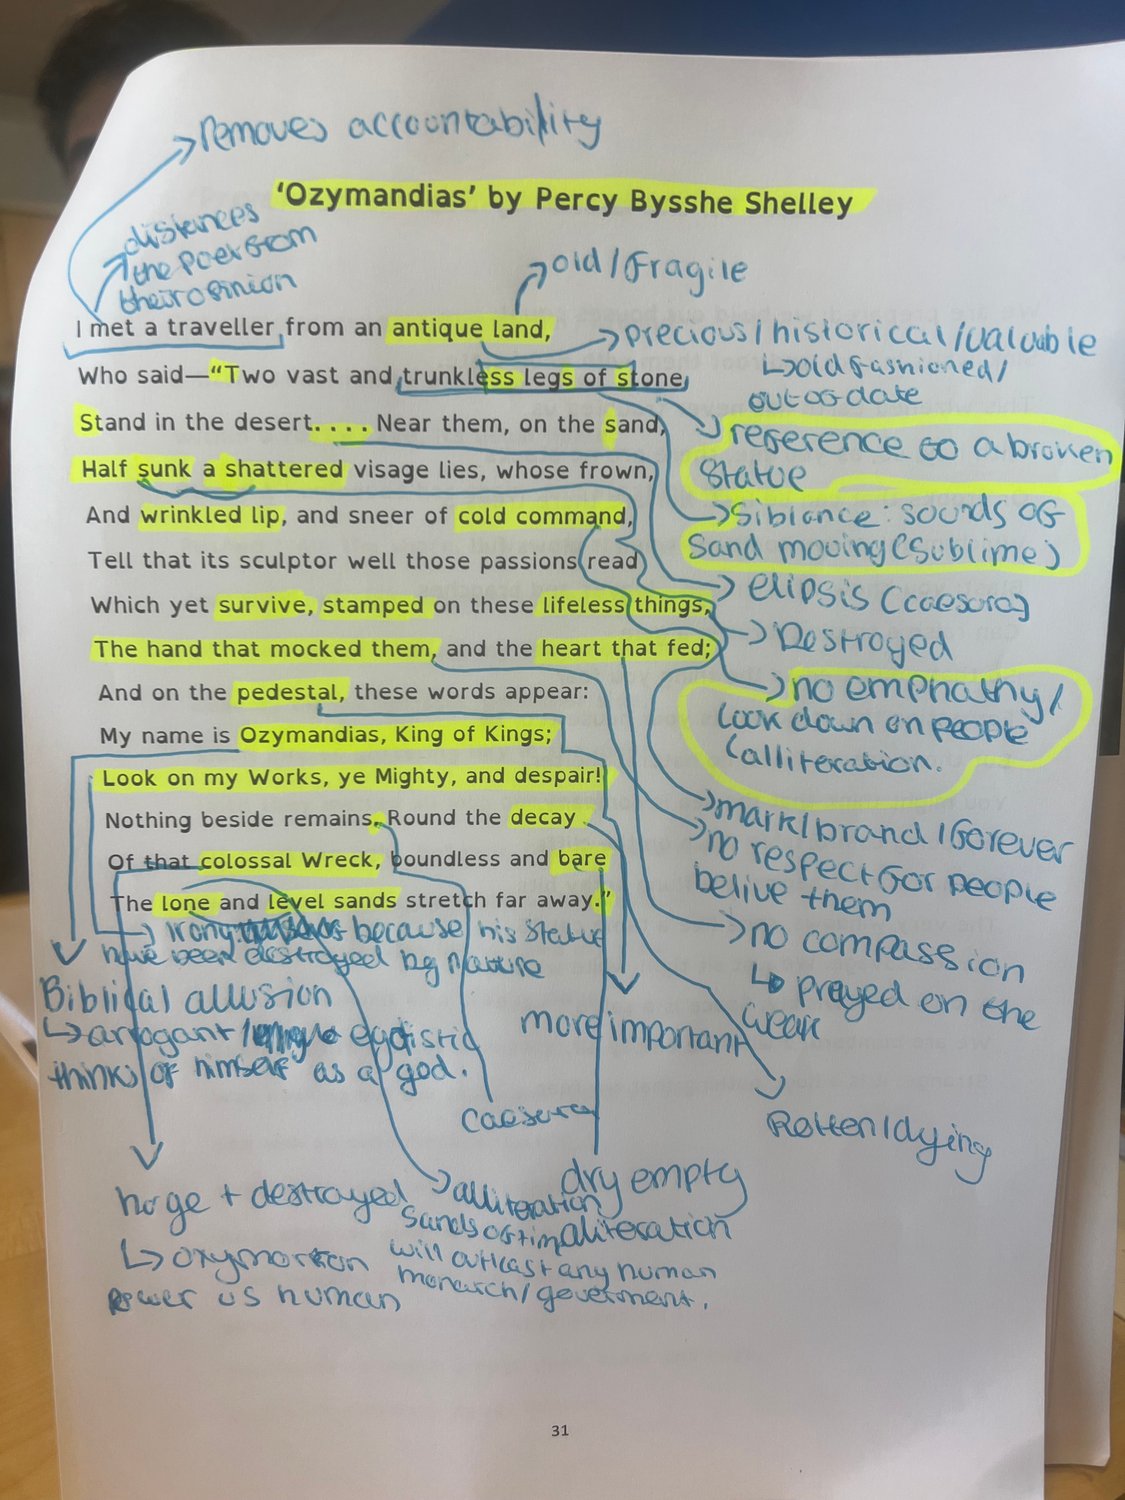 removes accountability
'Ozymandias' by Percy Bysshe Shelley
distances
the poet from
their opinion
old/fragile
I met a traveller from an antique land,
precious/historical/valuable
Who said—“Two vast and trunkless legs of stone
↳old fashioned/
out of date
Stand in the desert. . . . Near them, on the sand,
reference to a broken
statue
Half sunk a shattered visage lies, whose frown,
And wrinkled lip, and sneer of cold command,
Siblance: sounds of
sand moving (sublime)
Tell that its sculptor well those passions read
elipsis (caesora)
Which yet survive, stamped on these lifeless things,
Destroyed
The hand that mocked them, and the heart that fed;
no emphathy/
look down on people
(alliteration.
And on the pedestal, these words appear:
My name is Ozymandias, King of Kings;
Look on my Works, ye Mighty, and despair!
mark/brand/forever
Nothing beside remains. Round the decay
no respect for people
belive them
Of that colossal Wreck, boundless and bare
The lone and level sands stretch far away.”
no compassion
↳ preyed on the
weak
irony because his statue
have been destroyed by nature
Biblical allusion
↳arrogant/ egotistic
thinks of himself as a god.
more important
caesura
Rotten/dying
dry empty
aliteration
huge + destroyed
↳ oxymoron
power vs human
alliteration
sands of tim
will outlast any human
monarch/goverment.
31